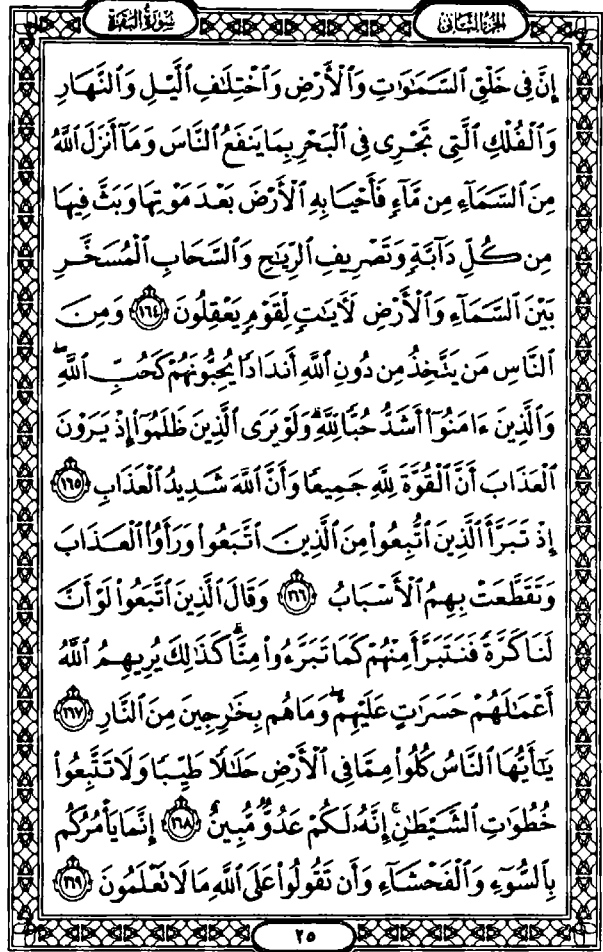 الجزء الثانى
سورة البقرة
إِنَّ فِى خَلْقِ ٱلسَّمَـٰوَٰتِ وَٱلْأَرْضِ وَٱخْتِلَـٰفِ ٱلَّيْلِ وَٱلنَّهَارِ
وَٱلْفُلْكِ ٱلَّتِى تَجْرِى فِى ٱلْبَحْرِ بِمَا يَنفَعُ ٱلنَّاسَ وَمَآ أَنزَلَ ٱللَّهُ
مِنَ ٱلسَّمَآءِ مِن مَّآءٍ فَأَحْيَا بِهِ ٱلْأَرْضَ بَعْدَ مَوْتِهَا وَبَثَّ فِيهَا
مِن كُلِّ دَآبَّةٍ وَتَصْرِيفِ ٱلرِّيَـٰحِ وَٱلسَّحَابِ ٱلْمُسَخَّرِ
بَيْنَ ٱلسَّمَآءِ وَٱلْأَرْضِ لَـَٔايَـٰتٍ لِّقَوْمٍ يَعْقِلُونَ ١٦٤ وَمِنَ
ٱلنَّاسِ مَن يَتَّخِذُ مِن دُونِ ٱللَّهِ أَندَادًا يُحِبُّونَهُمْ كَحُبِّ ٱللَّهِ ۖ
وَٱلَّذِينَ ءَامَنُوٓا۟ أَشَدُّ حُبًّا لِّلَّهِ ۗ وَلَوْ يَرَى ٱلَّذِينَ ظَلَمُوٓا۟ إِذْ يَرَوْنَ
ٱلْعَذَابَ أَنَّ ٱلْقُوَّةَ لِلَّهِ جَمِيعًا وَأَنَّ ٱللَّهَ شَدِيدُ ٱلْعَذَابِ ١٦٥
إِذْ تَبَرَّأَ ٱلَّذِينَ ٱتُّبِعُوا۟ مِنَ ٱلَّذِينَ ٱتَّبَعُوا۟ وَرَأَوُا۟ ٱلْعَذَابَ
وَتَقَطَّعَتْ بِهِمُ ٱلْأَسْبَابُ ١٦٦ وَقَالَ ٱلَّذِينَ ٱتَّبَعُوا۟ لَوْ أَنَّ
لَنَا كَرَّةً فَنَتَبَرَّأَ مِنْهُمْ كَمَا تَبَرَّءُوا۟ مِنَّا ۗ كَذَٰلِكَ يُرِيهِمُ ٱللَّهُ
أَعْمَـٰلَهُمْ حَسَرَٰتٍ عَلَيْهِمْ ۖ وَمَا هُم بِخَـٰرِجِينَ مِنَ ٱلنَّارِ ١٦٧
يَـٰٓأَيُّهَا ٱلنَّاسُ كُلُوا۟ مِمَّا فِى ٱلْأَرْضِ حَلَـٰلًا طَيِّبًا وَلَا تَتَّبِعُوا۟
خُطُوَٰتِ ٱلشَّيْطَـٰنِ ۚ إِنَّهُۥ لَكُمْ عَدُوٌّ مُّبِينٌ ١٦٨ إِنَّمَا يَأْمُرُكُم
بِٱلسُّوٓءِ وَٱلْفَحْشَآءِ وَأَن تَقُولُوا۟ عَلَى ٱللَّهِ مَا لَا تَعْلَمُونَ ١٦٩
٢٥